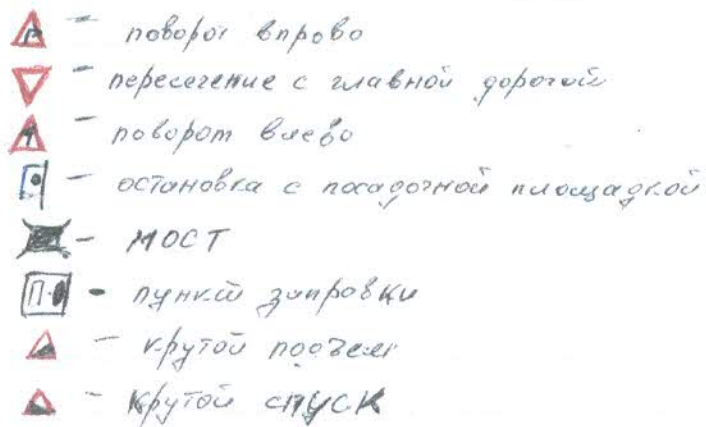 - поворот вправо
- пересечение с главной дорогой
- поворот влево
- остановка с посадочной площадкой
- МОСТ
П - пункт заправки
- крутой подъем
- крутой спуск